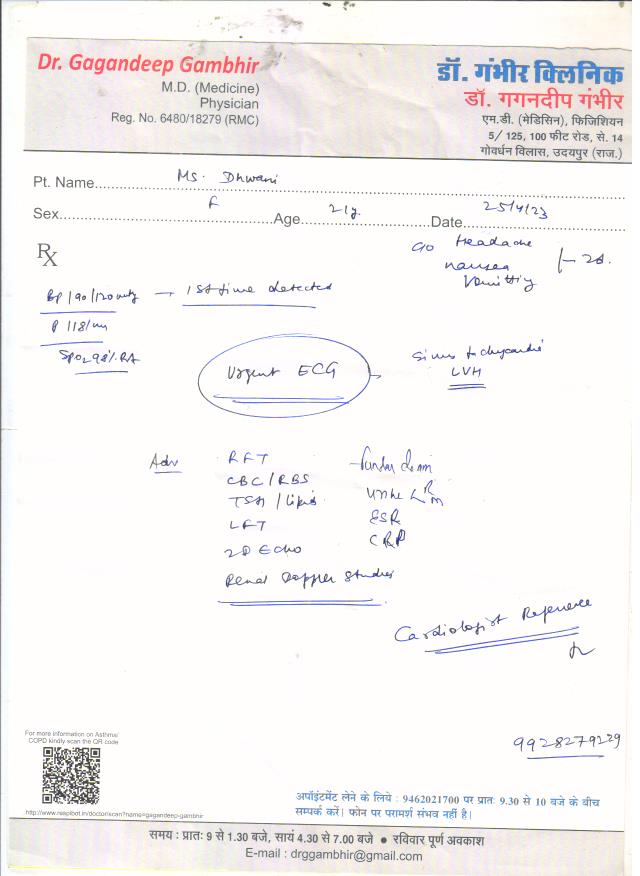 Dr. Gagandeep Gambhir
M.D. (Medicine)
Physician
Reg. No. 6480/18279 (RMC)
डॉ. गंभीर क्लिनिक
डॉ. गगनदीप गंभीर
एम.डी. (मेडिसिन), फिजिशियन
5/ 125, 100 फीट रोड, से. 14
गोवर्धन विलास, उदयपुर (राज.)
Pt. Name Ms. Dhwani
Sex F Age 21y. Date 25/4/23
Rx
C/o Headache
nausea
Vomitting
2d.
BP 190/120 mmHg → 1st time detected
P 118/m
SpO2 98% RA
Urgent ECG → Sinus tachycardia
LVH
Adv RFT
CBC/RBS
TSH/Lipid
LFT
2D Echo
Renal Doppler Studies
Urine R/m
ESR
CRP
Cardiologist Reference
9928279229
For more information on Asthma/
COPD kindly scan the QR code
http://www.reapbot.in/doctor/scan?name=gagandeep-gambhir
अपॉइंटमेंट लेने के लिये : 9462021700 पर प्रातः 9.30 से 10 बजे के बीच
सम्पर्क करें। फोन पर परामर्श संभव नहीं है।
समय : प्रातः 9 से 1.30 बजे, सायं 4.30 से 7.00 बजे ● रविवार पूर्ण अवकाश
E-mail : drggambhir@gmail.com